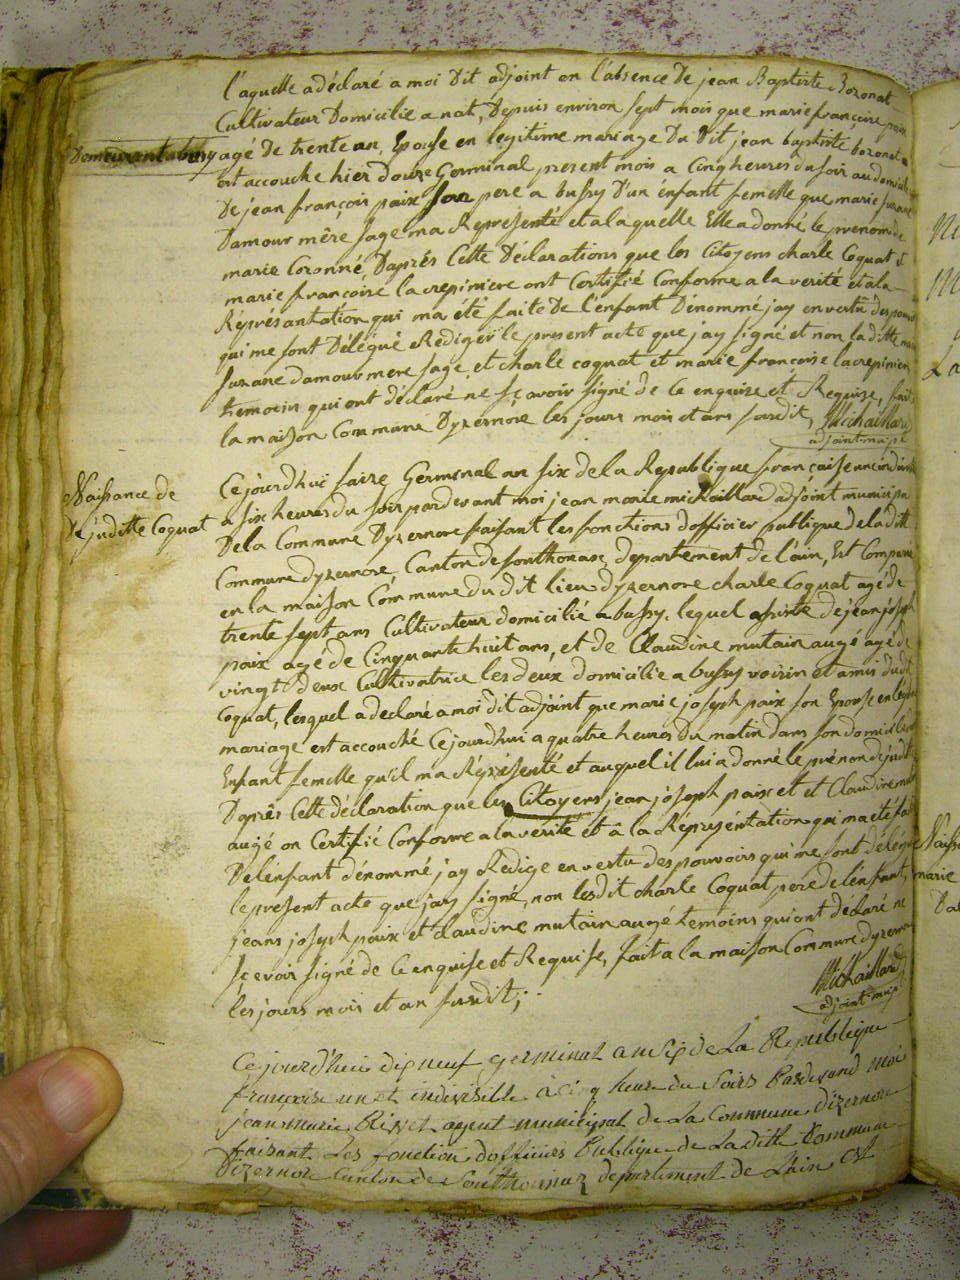 l'aquelle a déclaré a moi Dit adjoint en l'absence De jean Baptiste Bozonat
Cultivateur Domicilié a nat, Depuis environ sept mois que marie françoise paix
Demeurant a bussy
agé De trente an, Epouse en legitime mariage Du Dit jean baptiste bozonat
est accouché hier douze Germinal present mois a Cinq heures du soir au domicile
De jean françois paix son pere a bussy D'un enfant femelle que marie suzane
Damour mère sage ma Représenté et a laquelle Elle a donné le prenom de
marie Coronné, Daprés Cette Déclarations que les Citoyens charle Coquat et
marie françoise lacrepiniere ont Certifié Conforme a la verité et a la
Réprésantation qui ma été faite De l'enfant Dénommé jay en vertu des pouvoirs
qui me sont Délégué Rediger le present acte que jay signé et non la ditte marie
suzane damour mere sage et charle coquat et marie françoise lacrepiniere
temoin qui ont déclaré ne sçavoir signé de ce enquise et Requise, fait a
la maison Commune Dyzernore les jours mois et an susdit, Michaillard
adjoint mup.l
Naissance de
De juditte Coquat
Ce jourd'hui saize Germinal an six de la Republique française une indivisible
a six heures du soir pardevant moi jean marie michaillard adjoint municipal
De la Commune Dyzernore faisant les fonctions dofficier publique de la ditte
Commune dyzernore, Canton de sonthonax, departement de l'ain, Est Comparu
en la maison Commune du dit lieu dyzernore charle Coquat agé de
trente sept ans Cultivateur domicilié a bussy, lequel assisté de jean joseph
paix agé de Cinquante huit ans, et de Claudine mutain augé agé de
vingt deux Cultivatrice les deux domicilié a bussy voisin et amis du dit
Coquat, lesquel a declaré a moi dit adjoint que marie joseph paix son Epouse en légitime
mariage est accouché Ce jourdhui a quatre heures du matin dans son domicile
Enfant femelle qu'il ma Réprésenté et auquel il lui a donné le prénon de juditte
Daprês Cette déclaration que les Citoyens jean joseph paix et et Claudine mutain
augé on Certifié Conforme a la verité et â la Réprésentation qui ma eté faite
De lenfant dénommé jay Rédige en vertu des pouvoirs qui me sont délégué
le present acte que jay signé, non lesdit charle Coquat pere de lénfant,
jeans joseph paix et claudine mutain augé temoins qui ont déclaré ne
sçevoir signé de Ce enquise et Requise, fait a la maison Commune dyzernore
les jours mois et an susdit;
Michaillard
adjoint mup.l
Ce jourd'huis dix neuf germinal an six de La Republique
françoise un et indivisible à cinq heure du Soirs Pardevand moi
jean marie agent municipal de La Commune dizernore
faisant Les fonction d'officiers Publique de Laditte Commune
Dizernore Canton de Sonthonnax departement de L'ain est